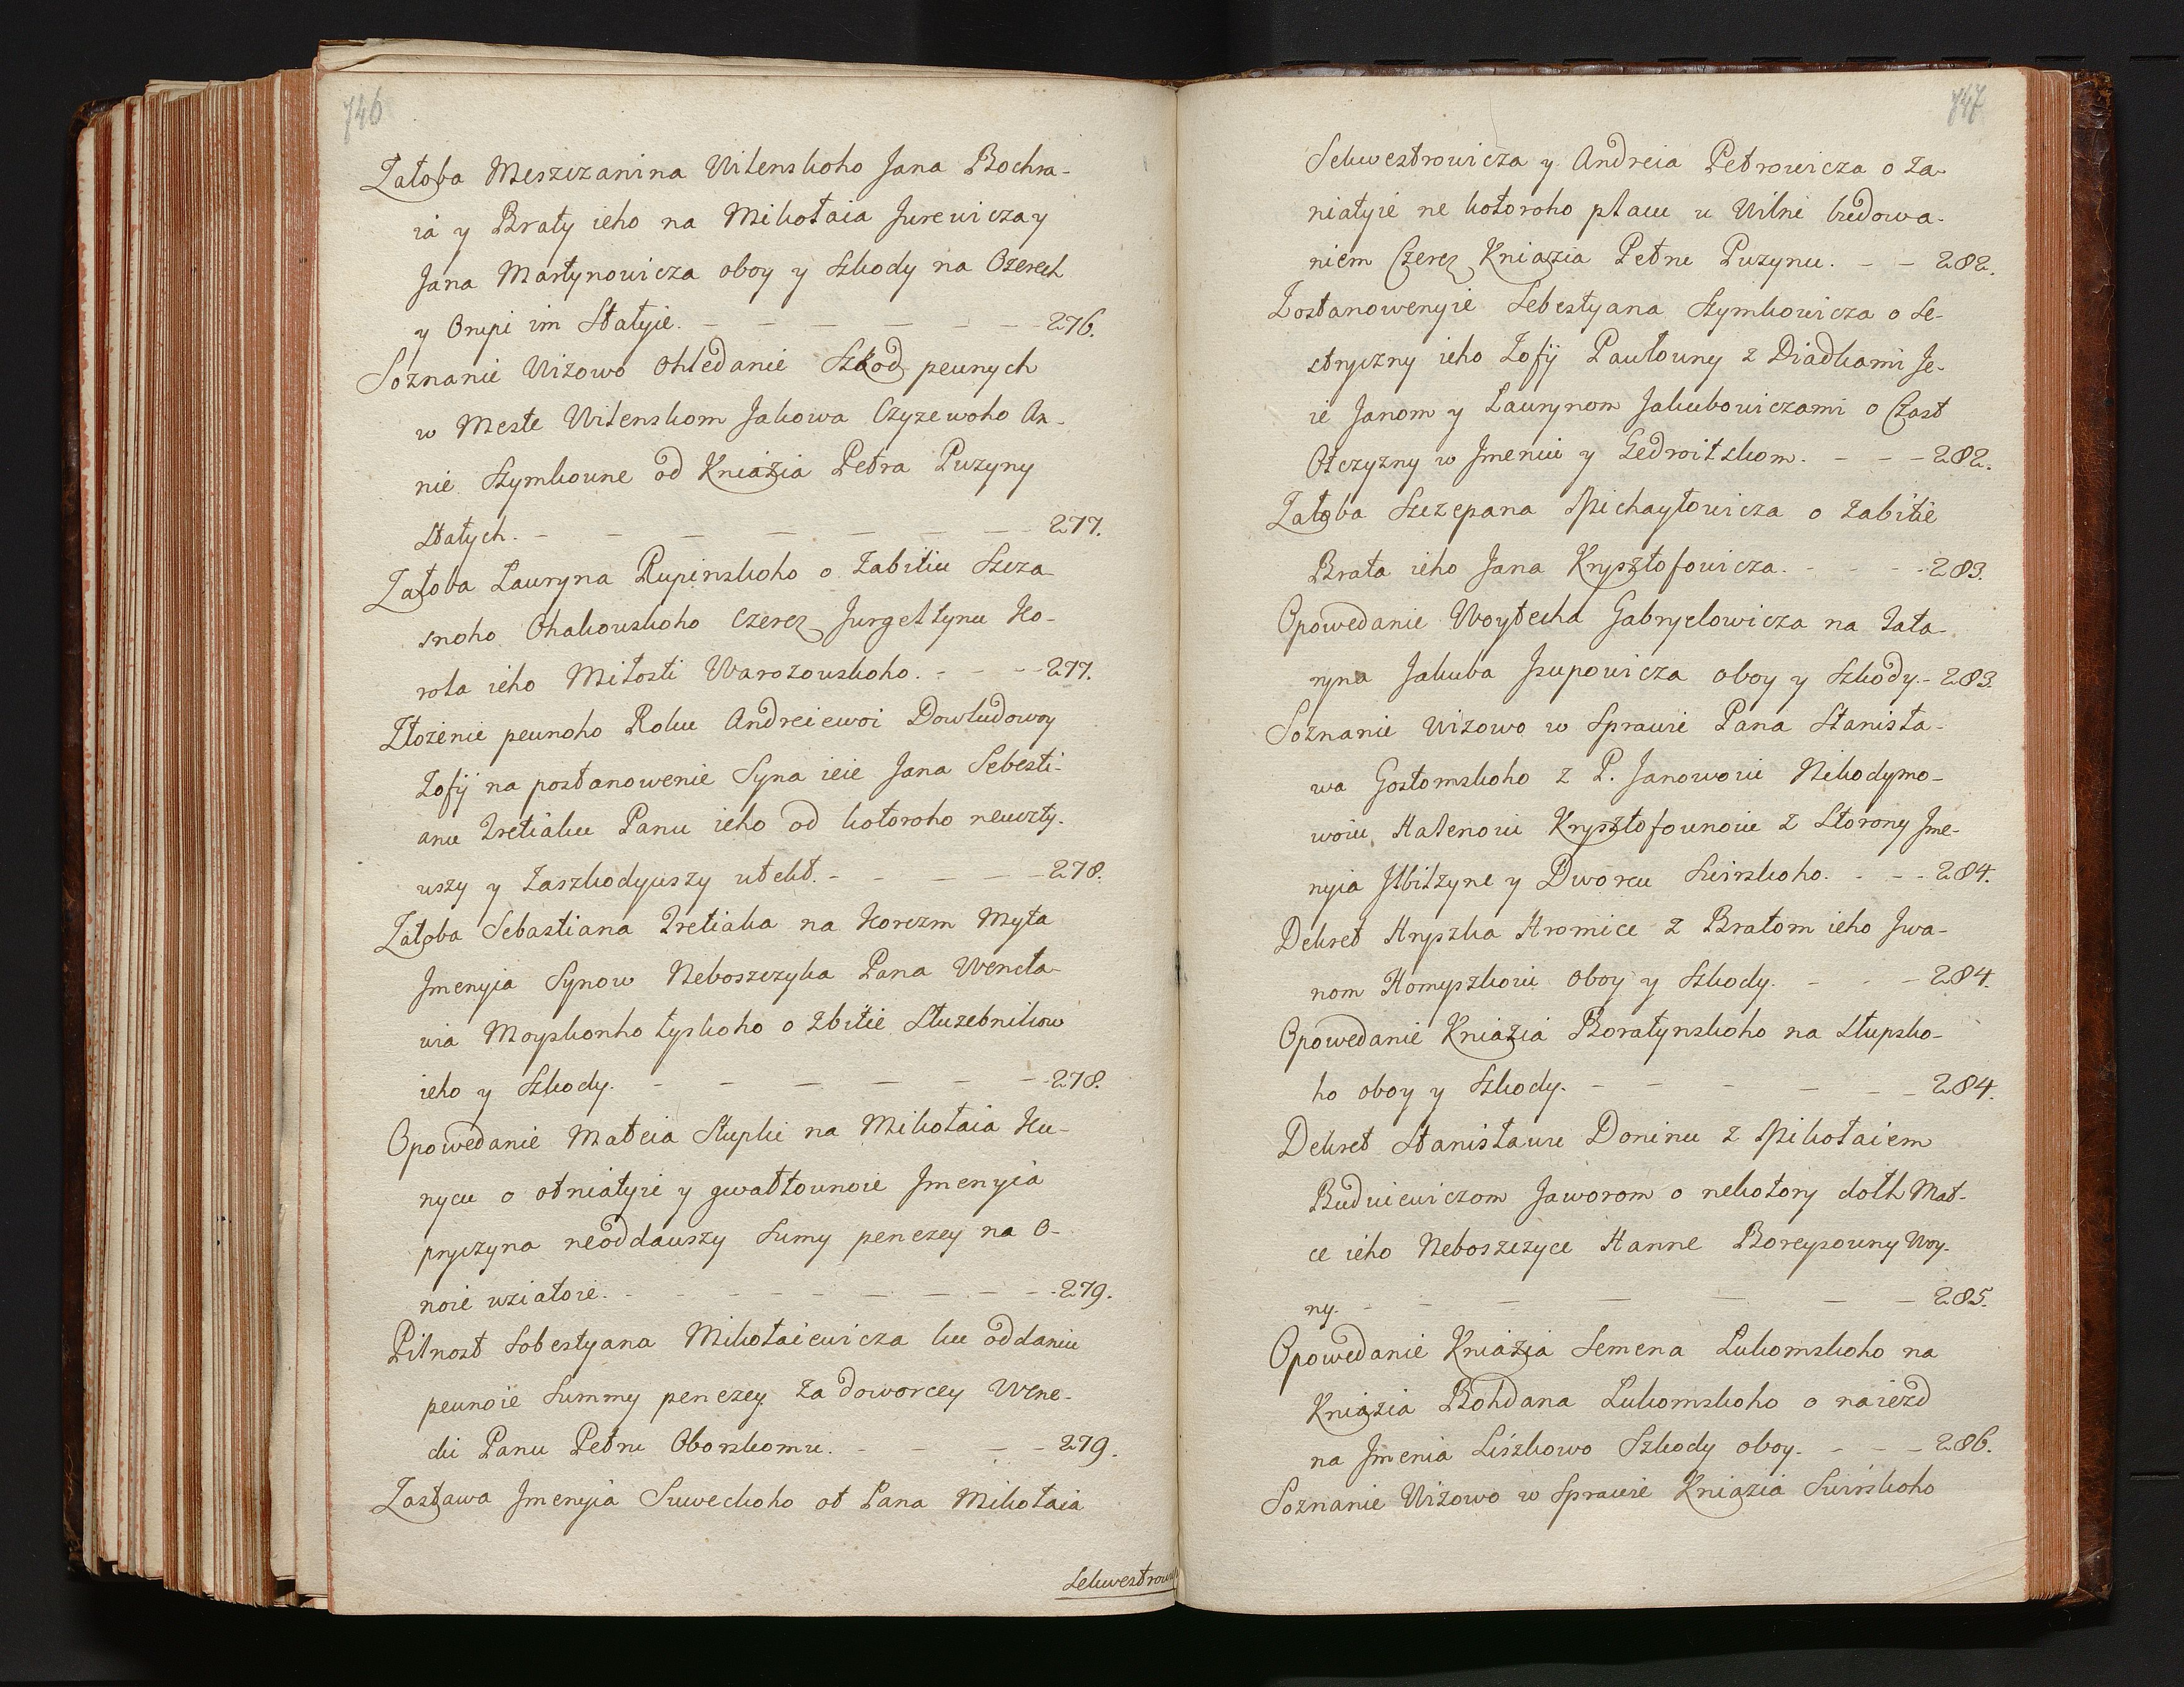 746
Załoba Meszczanina Wilenskoho Jana Bochra-
ia y Braty ieho na Mikołaia Jurewicza y
Jana Martynowicza oboy y Szkody na Ozerech
y Orupi im Statyie. - - - - - - 276.
Soznanie Wiżowo Ohledanie Szkod pewnych
w Meste Wilenskom Jakowa Czyzewoho An-
nie Szymkowne od Kniazia Petra Puzyny
Stałych. - - - - - - 277.
Załoba Lauryna Rupinskoho o Zabitiu Szcza-
snoho Chakouskoho Czerez Jurgeltynu Ko-
rola ieho Miłosti Warozouskoho. - - - 277.
Złożenie pewnoho Roku Andreiewoi Dowludowoy
Zofij na postanowenie Syna ieie Jana Sebesti-
anu Tretiaku Panu ieho od kotoroho neuczty-
uszy y Zaszkodyuszy utekł. - - - - 278.
Załoba Sebastiana Tretiaka na Korczm Myta
Jmenyia Synow Neboszczyka Pana Wencła-
wia Moyskonho tyskoho o Zbitie Służebnikow
ieho y Szkody. - - - - - - 278.
Opowedanie Mateia Słupki na Mikołaia Ku-
nycu o otniatyie y gwałtounoie Jmenyia
pryczyna neoddauszy Sumy penezey na O-
noie uziatoie. - - - - - - - 279.
Pilnost Sobestyana Mikołaiewicza ku oddaniu
peunoie Summy penezey za doworcey Wene-
cki Panu Petru Oborskomu. - - - - 279.
Zastawa Jmenyia Suweckoho ot Pana Mikołaia
Sekwestrowi
747
Sekwestrowicza y Andreia Petrowicza o Za-
niatyie ne kotoroho płacu u Wilni budowa-
niem Czerez Kniazia Petru Puzynu. - - 282.
Zostanowenyie Sebestyana Szymkowicza o Se-
stryczny ieho Zofij Paułouny z Diadkami Je-
ie Janom y Laurynom Jakubowiczami o Czast
Otczyzny w Jmeniu y Gedroitskom. - - - 282.
Załoba Szczepana Michayłowicza o Zabitie
Brata ieho Jana Krysztofowicza. - - - 283.
Opowedanie Woytecha Gabryelowicza na Tata-
ryna Jakuba Jsupowicza oboy y Szkody. - 283.
Soznanie Wiżowo w Sprawie Pana Stanisła-
wa Gostomskoho z P. Janowoiu Nikodymo-
woiu Halenoiu Krysztofounoiu z Storony Jme-
nyia Jlbitzyne y Dworcu Swirskoho. - - - 284.
Dekret Hryszka Hromice z Bratom ieho Jwa-
nom Homyszkoiu oboy y Szkody. - - - 284.
Opowedanie Kniazia Boratynskoho na Słupsko-
ho oboy y Szkody. - - - - - - 284.
Dekret Stanisławu Doninu z Mikołaiem
Budwiewiczom Jaworom o nekotory dołh Mat-
ce ieho Neboszczyce Hanne Boreysouny Woy-
ny. - - - - - - 285.
Opowedanie Kniazia Semena Lukomskoho na
Kniazia Bohdana Lukomskoho o naiezd
na Jmenia Liszkowo Szkody oboy. - - - 286.
Soznanie Wiżowo w Sprawie Kniazia Swirskoho